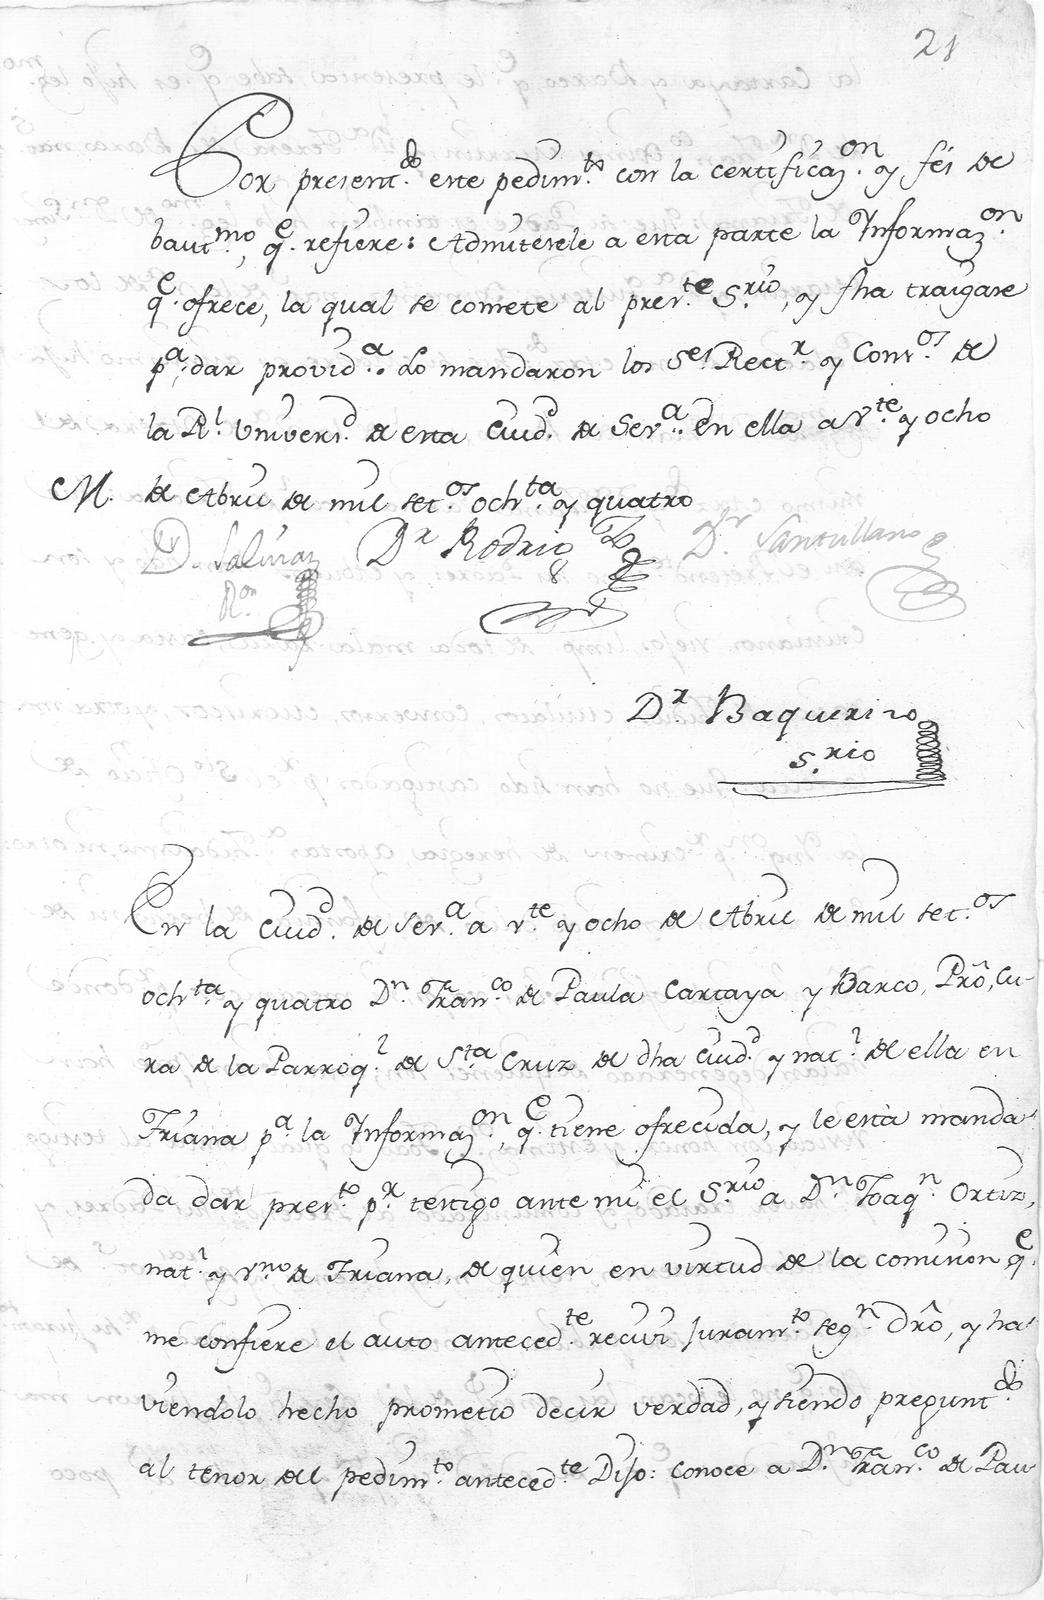 21
Por present.do este pedim.to con la certificaz.on y feé de
baut.mo, q.e refiere: Admitesele a esta parte la Informaz.on
q.e ofrece, la qual se comete al pres.te S.rio, y fha traigase
p.a dar provid.a Lo mandaron los S.es Rect.r y Cons.os de
la R.l Univers.d de esta Ciud.d de Sev.a en ella a v.te y ocho
M. de Abril de mil set.os och.ta y quatro
D.r Salinas D.r Rodrig D.r Santullano
R.on
D.r Baquerizo
S.rio
En la Ciud.d de Sev.a a v.te y ocho de Abril de mil set.os
och.ta y quatro D.n Fran.co de Paula Cartaya y Barco, Prô, Cu-
ra de la Parroq.l de S.ta Cruz de dha Ciud.d y nat.l de ella en
Triana p.a la Informaz.on, q.e tiene ofrecida, y le está manda-
da dar pres.to p.r testigo ante mi el S.rio a D.n Joaq.n Ortiz,
nat.l y v.no de Triana, de quien en virtud de la comision q.e
me confiere el auto anteced.te recivi juram.to seg.n drô, y ha-
viendolo hecho prometio decir verdad, y siendo pregunt.do
al tenor del pedim.to anteced.te Dijo: conoce a D.n Fran.co de Pau-